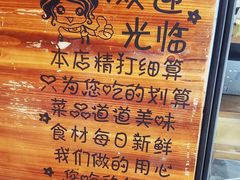 欢迎
光临
本店精打细算
只为您吃的划算
菜品道道美味
食材每日新鲜
我们做的用心
您吃的